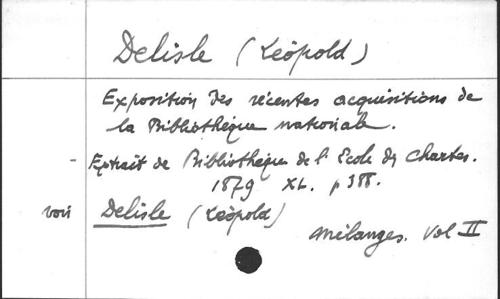 Delisle (Léopold)
Exposition des récentes acquisitions de
la Bibliothèque nationale.
- Extrait de Bibliothèque de l'Ecole des Chartes.
1879 XL. p 388.
voir Delisle (Léopold)
Mélanges. Vol II